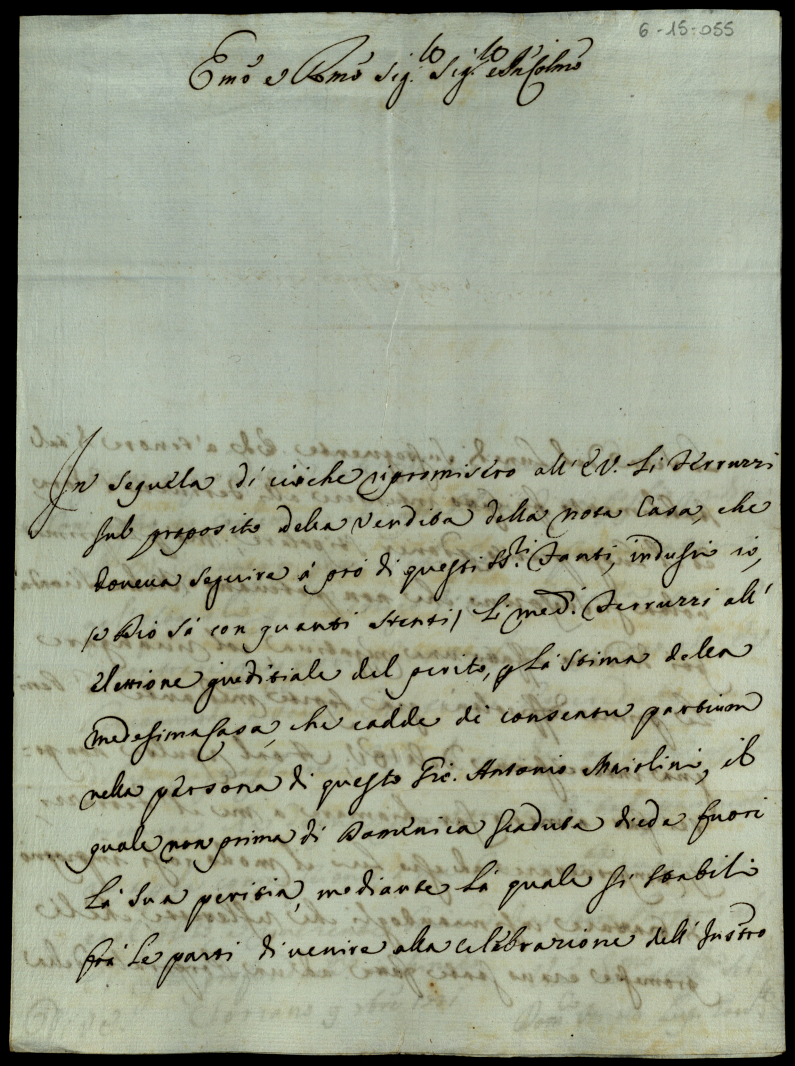 6-15-055
Emo e Rmo Sig.re Sig.re Colmo
In sequela di ciòche ripromisero all' E.V. li Ferruzzi
sul proposito della vendita della nota Casa, che
doveva seguire à prò di questi SS.ti Santi, indussi io,
/e Dio sà con quanti stenti/ li med.i Ferruzzi all'
elettione giuditiale del perito, p la stima della
medesima Casa, che cadde de consensu partium
nella persona di questo Gio. Antonio Maiolini, il
quale non prima di Domenica scaduta diede fuori
la sua peritia, mediante la quale si stabilì
frà le parti di venire alla celebrazione dell' Instro